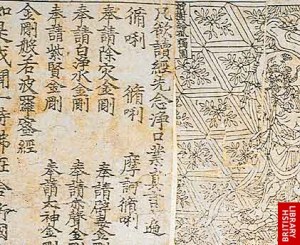 祇樹給孤獨園
凡欲讀經先念淨口業真言一遍
脩唎 脩唎 摩訶脩唎
奉請除灾金剛 奉請辟毒金剛
奉請白淨水金剛 奉請赤聲金剛
奉請紫賢金剛 奉請大神金剛
金剛般若波羅蜜經
如是我聞一時佛在舍衛國
BRITISH
LIBRARY